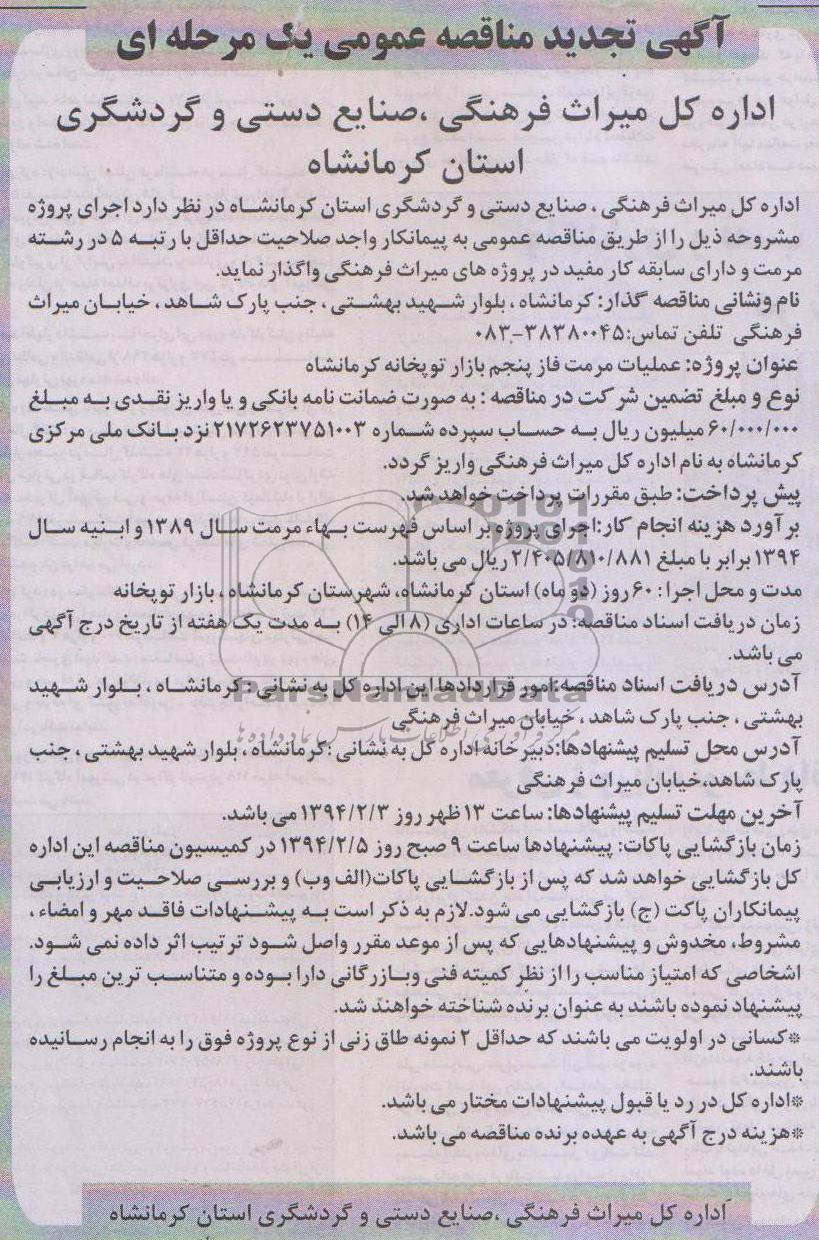 آگهی تجدید مناقصه عمومی یک مرحله ای
اداره کل میراث فرهنگی ،صنایع دستی و گردشگری
استان کرمانشاه
اداره کل میراث فرهنگی ، صنایع دستی و گردشگری استان کرمانشاه در نظر دارد اجرای پروژه
مشروحه ذیل را از طریق مناقصه عمومی به پیمانکار واجد صلاحیت حداقل با رتبه ۵ در رشته
مرمت و دارای سابقه کار مفید در پروژه های میراث فرهنگی واگذار نماید.
نام ونشانی مناقصه گذار: کرمانشاه ، بلوار شهید بهشتی ، جنب پارک شاهد ، خیابان میراث
فرهنگی تلفن تماس:۳۸۳۸۰۰۴۵-۰۸۳
عنوان پروژه: عملیات مرمت فاز پنجم بازار توپخانه کرمانشاه
نوع و مبلغ تضمین شرکت در مناقصه : به صورت ضمانت نامه بانکی و یا واریز نقدی به مبلغ
۶۰/۰۰۰/۰۰۰ میلیون ریال به حساب سپرده شماره ۲۱۷۲۶۲۳۷۵۱۰۰۳ نزد بانک ملی مرکزی
کرمانشاه به نام اداره کل میراث فرهنگی واریز گردد.
پیش پرداخت: طبق مقررات پرداخت خواهد شد.
برآورد هزینه انجام کار:اجرای پروژه بر اساس فهرست بهاء مرمت سال ۱۳۸۹ و ابنیه سال
۱۳۹۴ برابر با مبلغ ۲/۴۰۵/۸۱۰/۸۸۱ ریال می باشد.
مدت و محل اجرا : ۶۰ روز (دو ماه) استان کرمانشاه، شهرستان کرمانشاه ، بازار توپخانه
زمان دریافت اسناد مناقصه: در ساعات اداری (۸ الی ۱۴) به مدت یک هفته از تاریخ درج آگهی
می باشد.
آدرس دریافت اسناد مناقصه:امور قراردادها این اداره کل به نشانی : کرمانشاه ، بلوار شهید
بهشتی ، جنب پارک شاهد ، خیابان میراث فرهنگی
آدرس محل تسلیم پیشنهادها:دبیرخانه اداره کل به نشانی :کرمانشاه ، بلوار شهید بهشتی ، جنب
پارک شاهد،خیابان میراث فرهنگی
آخرین مهلت تسلیم پیشنهادها: ساعت ۱۳ ظهر روز ۱۳۹۴/۲/۳ می باشد.
زمان بازگشایی پاکات: پیشنهادها ساعت ۹ صبح روز ۱۳۹۴/۲/۵ در کمیسیون مناقصه این اداره
کل بازگشایی خواهد شد که پس از بازگشایی پاکات(الف وب) و بررسی صلاحیت و ارزیابی
پیمانکاران پاکت (ج) بازگشایی می شود.لازم به ذکر است به پیشنهادات فاقد مهر و امضاء ،
مشروط، مخدوش و پیشنهادهایی که پس از موعد مقرر واصل شود ترتیب اثر داده نمی شود.
اشخاصی که امتیاز مناسب را از نظر کمیته فنی وبازرگانی دارا بوده و متناسب ترین مبلغ را
پیشنهاد نموده باشند به عنوان برنده شناخته خواهند شد.
*کسانی در اولویت می باشند که حداقل ۲ نمونه طاق زنی از نوع پروژه فوق را به انجام رسانیده
باشند.
*اداره کل در رد یا قبول پیشنهادات مختار می باشد.
*هزینه درج آگهی به عهده برنده مناقصه می باشد.
اداره کل میراث فرهنگی ،صنایع دستی و گردشگری استان کرمانشاه
ParsNamadData